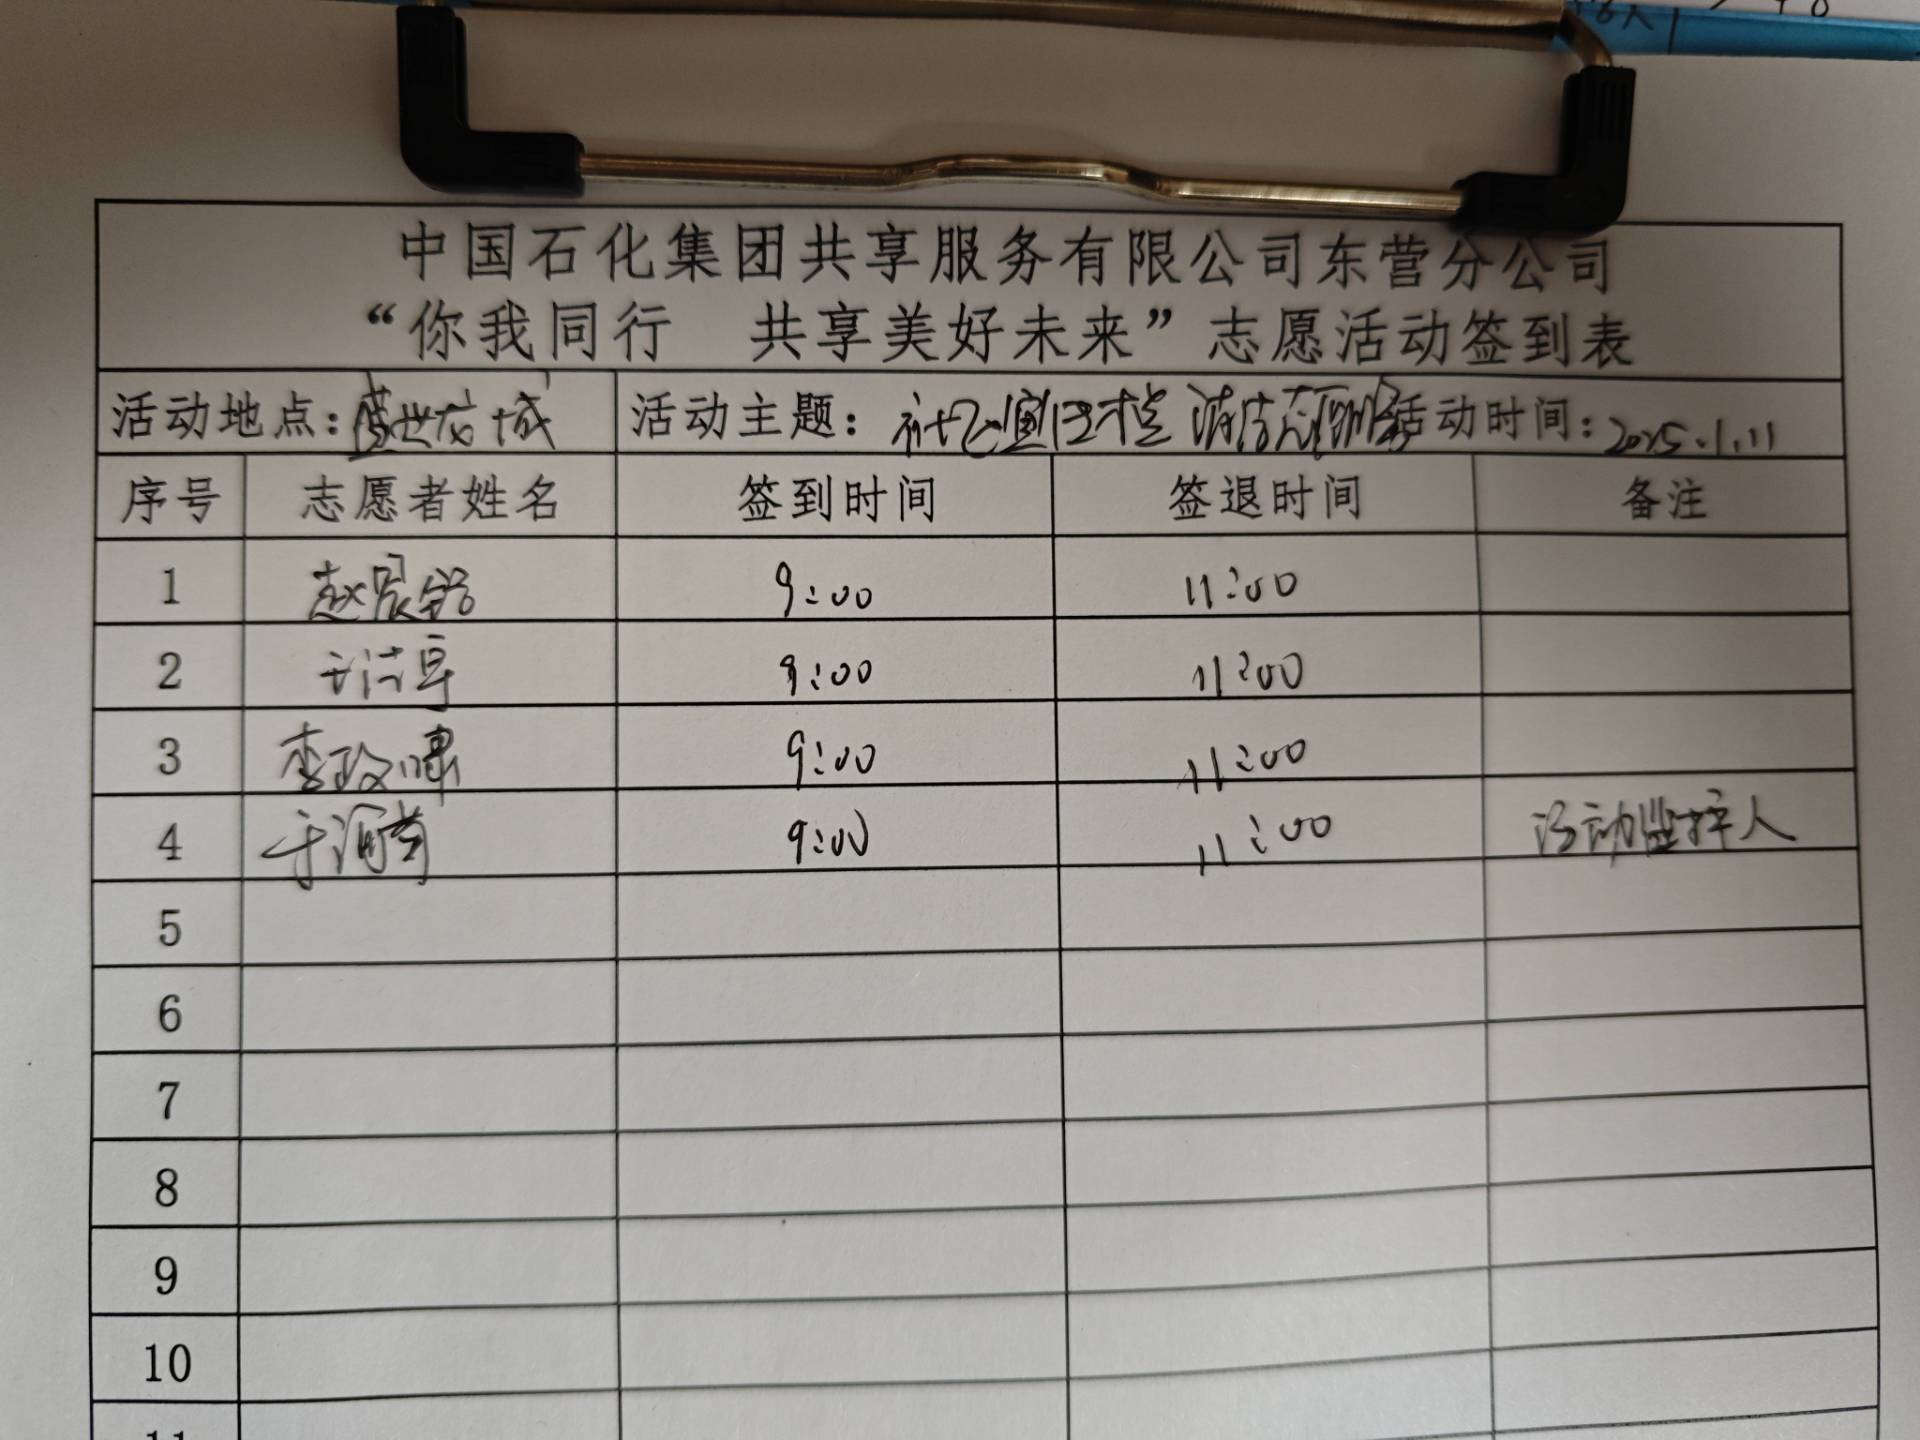 中国石化集团共享服务有限公司东营分公司
“你我同行 共享美好未来”志愿活动签到表
活动地点：盛世龙城 活动主题：社区 清洁志愿服务 活动时间：2025.1.11
序号 志愿者姓名 签到时间 签退时间 备注
1 赵晨铭 9:00 11:00
2 9:00 11:00
3 李政啸 9:00 11:00
4 于润 9:00 11:00 活动监护人
5
6
7
8
9
10
11